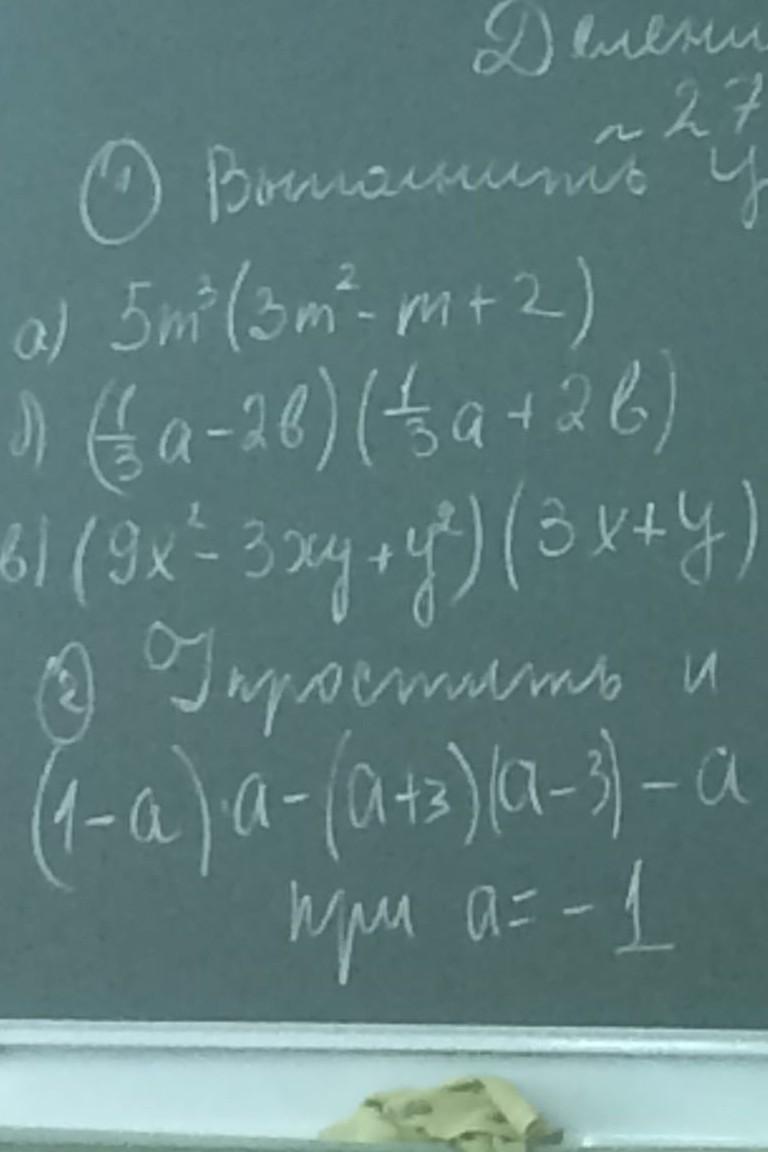 Делени
~ 27
① Выполнить у
а) 5m³(3m² - m + 2)
б) (⅓a - 2b)(⅓a + 2b)
в) (9x² - 3xy + y²)(3x + y)
② Упростить и
(1 - a)·a - (a+3)(a-3) - a
при a = -1